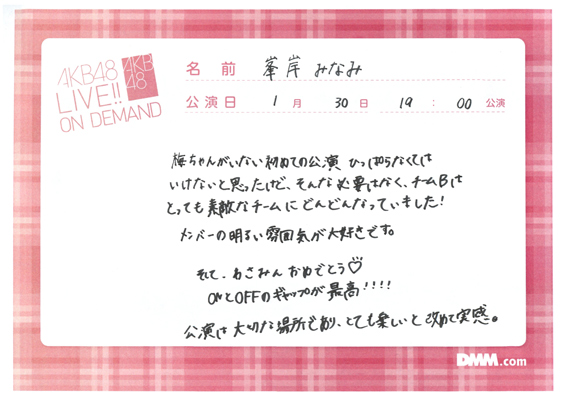 AKB48
LIVE!!
ON DEMAND
AKB
48
名前 峯岸 みなみ
公演日 1月 30日 19:00 公演
梅ちゃんがいない初めての公演 ひっぱらなくては
いけないと思ったけど、そんな必要はなく、チームBは
とっても素敵なチームにどんどんなっていました!
メンバーの明るい雰囲気が大好きです。
そして、わさみんおめでとう♡
ONとOFFのギャップが最高!!!!
公演は大切な場所であり、とても楽しいと改めて実感。
DMM.com